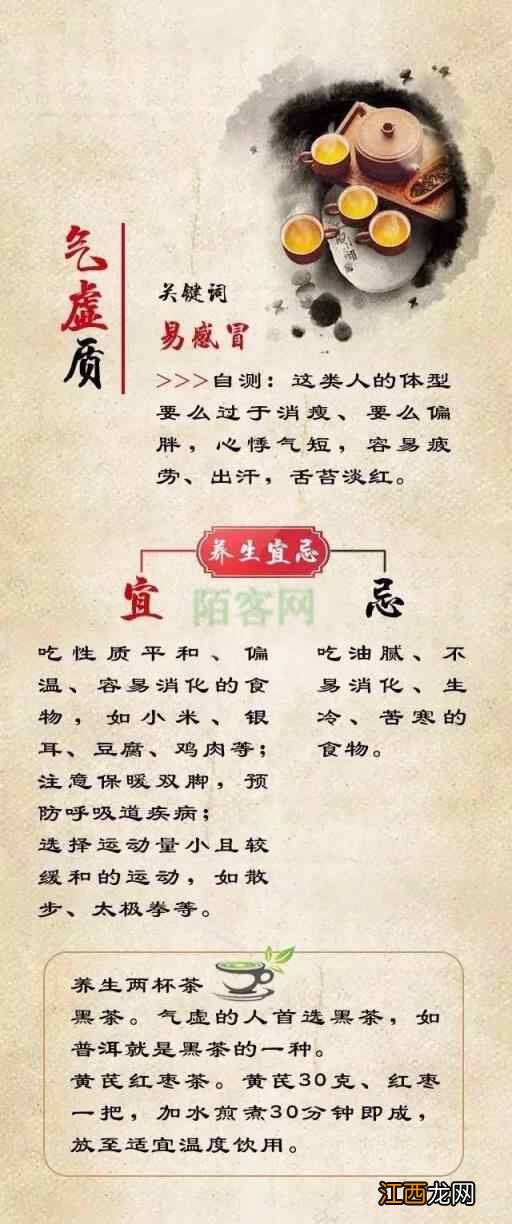 气虚质
关键词
易感冒
>>>自测：这类人的体型
要么过于消瘦、要么偏
胖，心悸气短，容易疲
劳、出汗，舌苔淡红。
养生宜忌
宜
忌
陌客网
吃性质平和、偏
温、容易消化的食
物，如小米、银
耳、豆腐、鸡肉等；
注意保暖双脚，预
防呼吸道疾病；
选择运动量小且较
缓和的运动，如散
步、太极拳等。
吃油腻、不
易消化、生
冷、苦寒的
食物。
养生两杯茶
黑茶。气虚的人首选黑茶，如
普洱就是黑茶的一种。
黄芪红枣茶。黄芪30克、红枣
一把，加水煎煮30分钟即成，
放至适宜温度饮用。
江西龙网